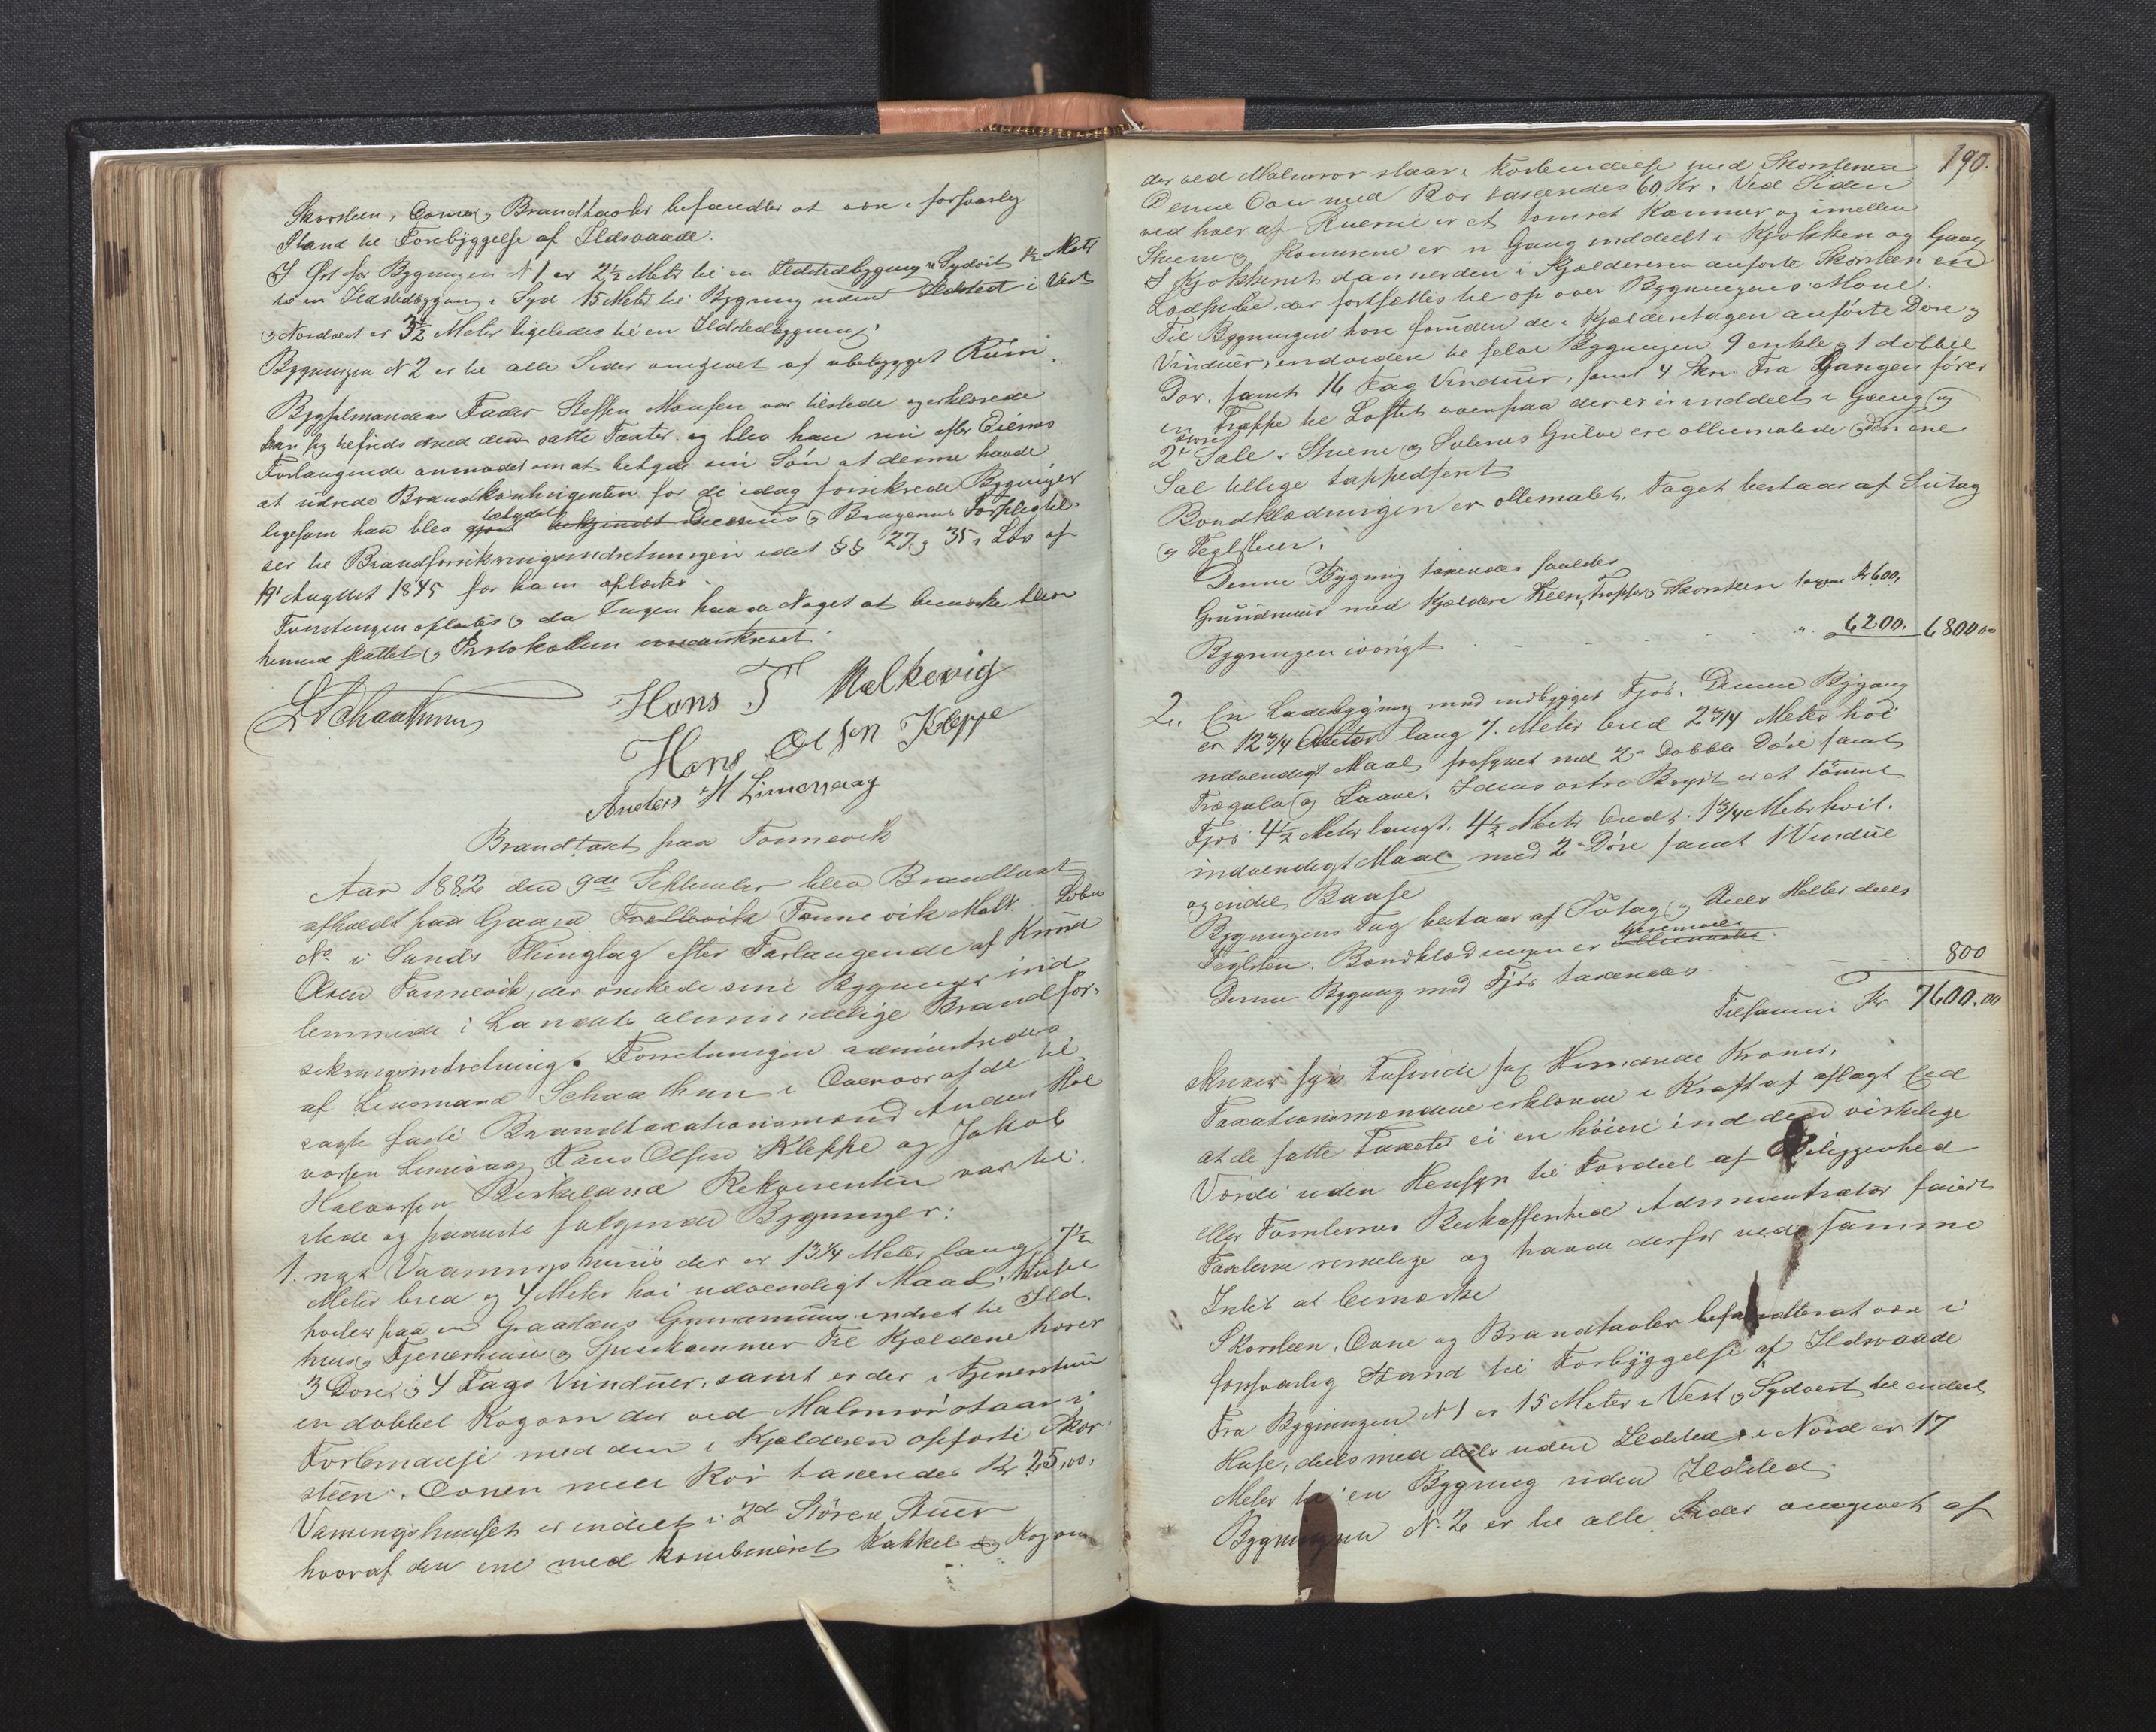 Skorsteen, Ovne og Brandtavler befandtes at være i forsvarlig
Stand til Forebyggelse af Ildsvaade.
I Øst for Bygningen N 1 er 2½ Meter til en Ildstedbygning i Sydøst 1½ Meter
til en Ildstedbygning i Syd 15 Meter til Bygning uden Ildsted i Vest
og Nordvest er 3½ Meter ligeledes til en Ildstedbygning.
Bygningen N 2 er til alle Sider omgivet af ubebygget Rum.
Bygselmandens Fader Steffen Monsen var tilstede og erklærede
han sig tilfreds med den satte Taxter og blev han nu efter Eiernes
Forlangende anmodet om at betyde sin Søn at denne havde
at udrede Brandkontingenten for de idag forsikrede Bygninger
ligesom han blev betydet Eierens og Brugerens Forpligtel-
ser til Brandforsikringsindretningen idet §§ 27 og 35 i Lov af
19 August 1845 for ham oplæstes.
Forretningen oplæstes og da Ingen havde Noget at bemærke blev
hermed sluttet og Protokollen underskrevet.
L Schaathun Hans T Mælkevig
Hans Olsen Kleppe
Anders H Limesvaag
Brandtaxt paa Tonnevik
Aar 1882 den 9de September blev Brandtaxt
afholdt paa Gaard Trollevik Tonnevik Matr. Løbe
No i Sunds Thinglag efter Forlangende af Knud
Olsen Tonnevik, der ønskede sine Bygninger ind
lemmede i Landets almindelige Brandfor-
sikringsindretning. Forretningen administredes
af Lensmand Schaathun i Overvær af de til
sagte faste Brandtaxationsmænd Anders Hal
vorsen Limesvaag, Hans Olsen Kleppe og Jakob
Halvorsen Birkeland Rekvirenten var til-
stede og paaviste følgende Bygninger:
1. nyt Vaaningshuus der er 13¼ Meter lang 7½
Meter bred og 4 Meter høi udvendigt Maal. Huset
hviler paa en Graastens Grundmuur indret til Ild-
huus, Tjenerstue og Spisekammer Til Kjeldene hører
3 Døre og 4 Fags Vinduer, samt er der i Tjenerstuen
en dobbel Kogovn der ved Malmrør staar i
Forbindelse med den i Kjelderen opførte Skor
steen. Ovnen med Rør taxeredes Kr 25,00.
Vaaningshuuset er indelt i 2de Større Stuer
hvoraf den ene med kombineret Kakkel og Kogovn
190.
der ved Malmrør staar i Forbindelse med Skorstenen
Denne Ovn med Rør taxeredes 60 Kr. Ved Siden
ved hver af Stuerne er et tømret Kammer og imellem
Stuen og Kamrene er en Gang inddeelt i Kjøkken og Gang
I Kjøkkenet danner den i Kjelderen anførte Skorsteen en
Lodpibe, der fortsættes til op over Bygningens Møne.
Til Bygningen høre foruden de i Kjelderetagen anførte Døre og
Vinduer, indvorden til selve Bygningen 9 enkle og 1 dobbel
Dør, samt 16 Fag Vinduer, samt 4 Fra Gangen fører
en Trappe til Loftet ovenpaa der er inddeelt i Gang og
2 store Sale. Stuene og Salenes Gulve ere olliemalede og den ene
Sal tillige tappedseret
Bondklædningen er olliemalet. Taget bestaar af Sutag
og Teglsteen.
Denne Bygning taxeredes saaledes
Grundmuur med Kjelder Heller, Trapper, Skorsteen taxeres Kr 600,
Bygningen iøvrigt - - - - " 6200. 6800 00
2. En Ladebygning med indbygget Fjøs. Denne Bygning
er 12¾ Meter lang 7. Meter bred 2¾ Meter høi
udvendigt Maal forsynet med 2 Dobble Døre samt
Trægulv og Laave. I dens østre Bryst er et tømret
Fjøs 4½ Meter langt. 4½ Meter bredt. 1¾ Meter høit.
indvendigt Maal med 2 Døre samt 1 Vindue
og endel Baase
Bygningens Tag bestaar af Sutag og deels Heller deels
Teglsten. Bondklædningen er
Denne Bygning med Fjøs taxeredes - - - 800
Tilsammen Kr 7600.00
skriver syv Tusinde sex Hundrede Kroner.
Taxationsmændene erklærede i Kraft af aflagt Eed
at de satte Taxeter ei er høiere ind den virkelige
Værdi uden Hensyn til Fordeel af Beliggenhed
eller Tomternes Beskaffenhed Administrator fandt
Taxterne rimelige og havde derfor ved samme
Intet at bemærke
Skorsteen, Ovne og Brandtavler befandtes at være i
forsvarlig Stand til Forbyggelse af Ildsvaade
Fra Bygningen N 1 er 15 Meter i Vest og Sydvest til endeel
Huse, deels med deels uden Ildsted, i Nord er 17
Meter til en Bygning uden Ildsted.
Bygningen N. 2 er til alle Sider omgivet af